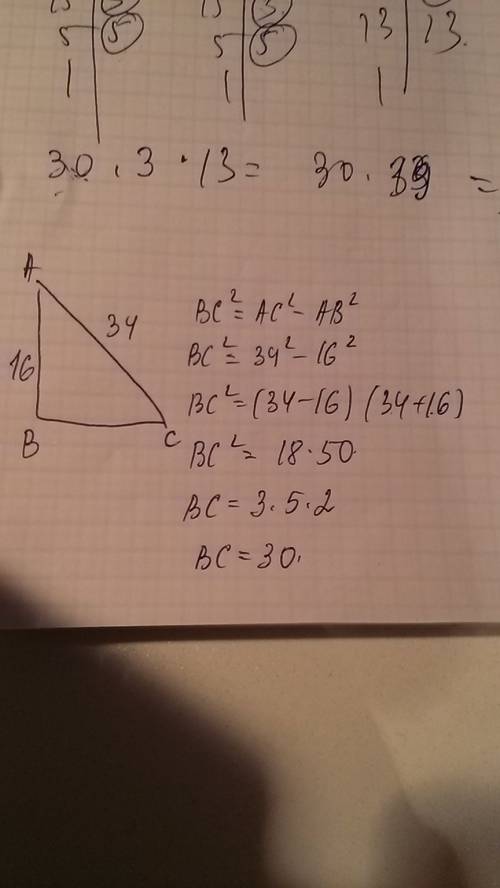 5 5 5 5 13 13.
1 1 1
30 . 3 · 13 = 30 . 39 =
A
34
16
B
C
BC² = AC² - AB²
BC² = 34² - 16²
BC² = (34-16) (34+16)
BC² = 18 · 50.
BC = 3 . 5 . 2
BC = 30.